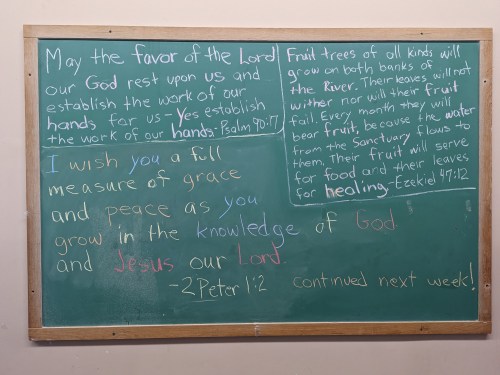 May the favor of the Lord
our God rest upon us and
establish the work of our
hands for us - Yes establish
the work of our hands. Psalm 90:17
Fruit trees of all kinds will
grow on both banks of
the River. Their leaves will not
wither nor will their fruit
fail. Every month they will
bear fruit, because the water
from the Sanctuary flows to
them. Their fruit will serve
for food and their leaves
for healing. -Ezekiel 47:12
I wish you a full
measure of grace
and peace as you
grow in the knowledge of God
and Jesus our Lord.
-2 Peter 1:2 continued next week!